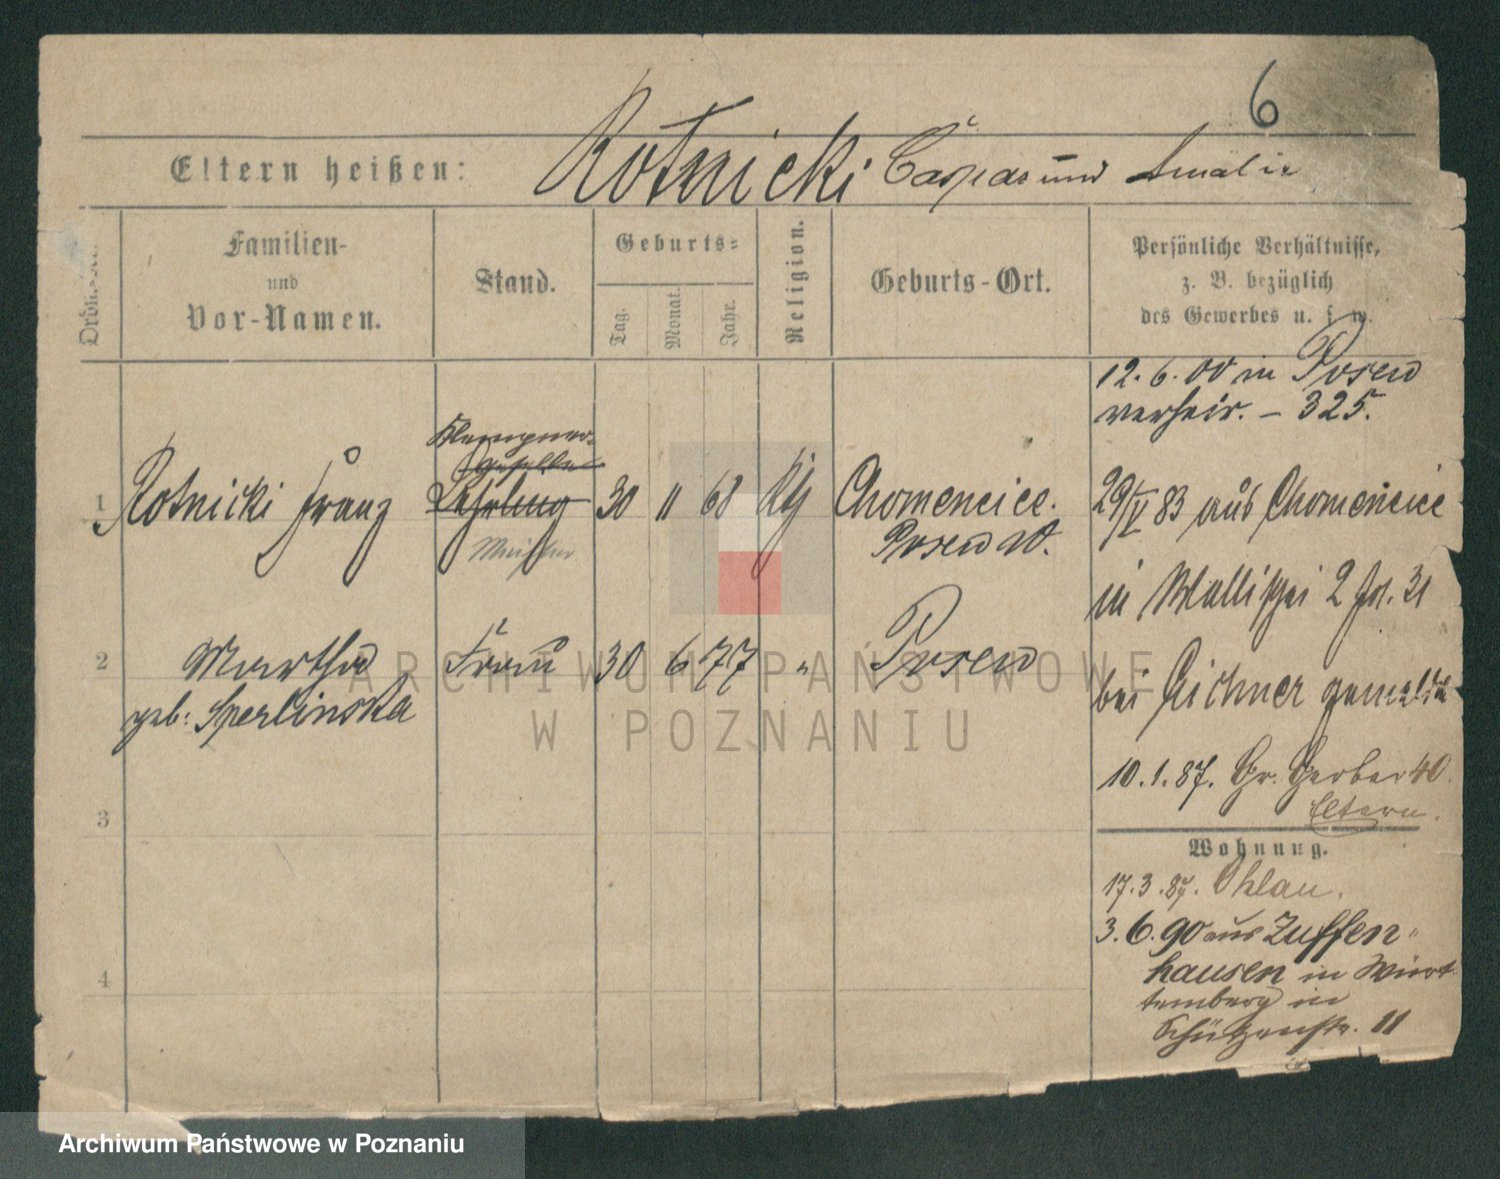 6
Eltern heißen: Rotnicki Caspar und Amalie
Ordnungs
Familien-
und
Vor-Namen.
Stand.
Geburts=
Tag.
Monat.
Jahr.
Religion.
Geburts-Ort.
Persönliche Verhältnisse,
z. B. bezüglich
des Gewerbes u. s. w.
12. 6. 00 in Posen
verheir. – 325.
Klempner-
geselle
1 Rotnicki Franz Lehrling 30 11 68 Kth Chomencice.
Meister
Posen W.
29/V 83 aus Chomencice
in Wallischei 2 fol. 31
bei Eichner gemeldet
10. 1. 87. Gr. Gerber 40
Eltern.
2 Martha Frau 30 6 77 " Posen
geb. Sperlinska
3
4
Wohnung.
17. 3. 87. Ohlau.
3. 6. 90 aus Zuffen"
hausen in Würt
temberg in
Schützenstr. 11
ARCHIWUM PAŃSTWOWE
W POZNANIU
Archiwum Państwowe w Poznaniu